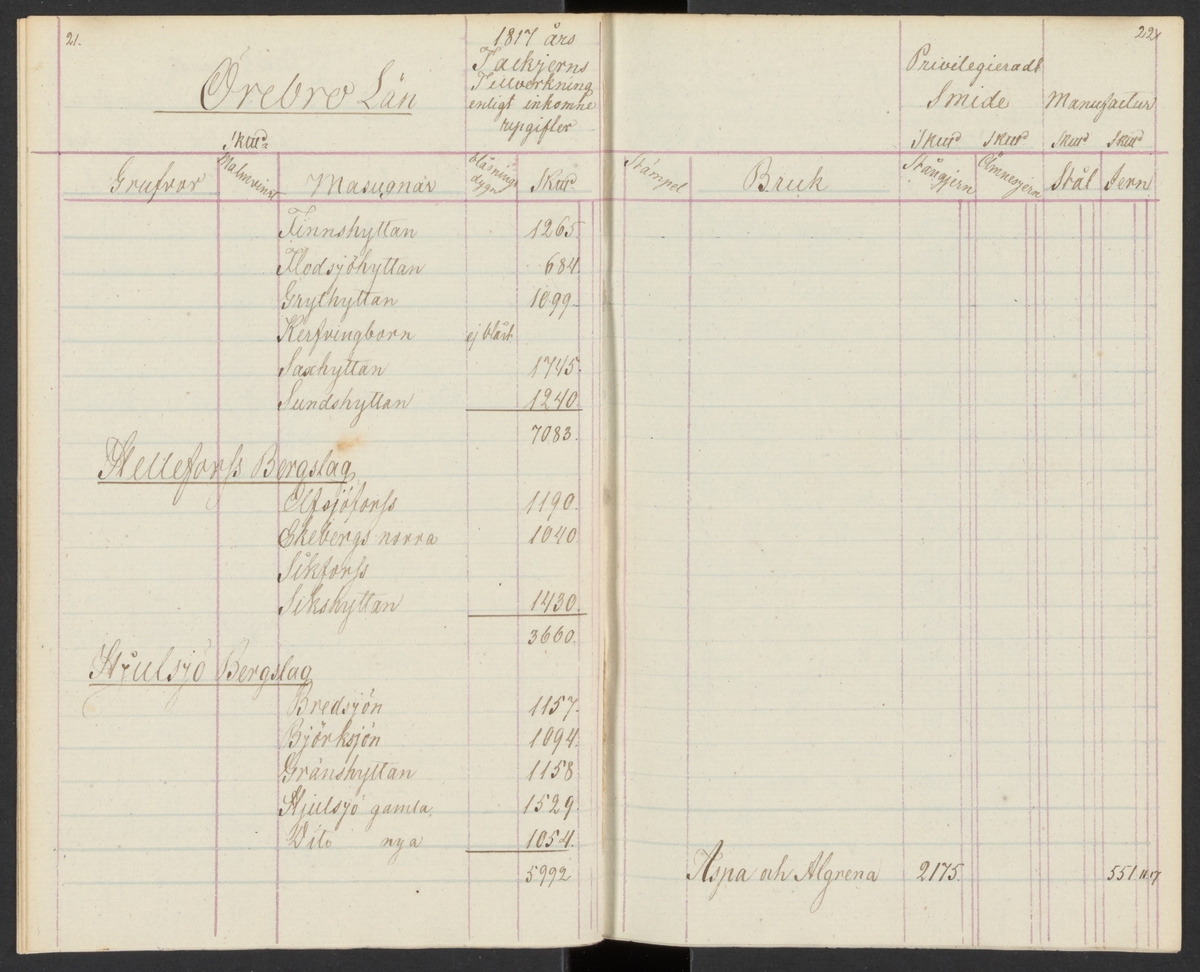 21.
Örebro Län
1817 års
Tackjerns
Tillverkning
enligt inkomne
upgifter
Skud
Grufvor Malmvinst Masugnar blåsnings dygn Skud
Finnshyttan 1265.
Flodsjöhyttan 684.
Grythyttan 1099.
Kerfvingborn ej blåst
Saxhyttan 1745.
Sundshyttan 1240.
7083.
Helleforss Bergslag
Elfsjöforss 1190.
Ekebergs norra 1040
Sikforss
Sikshyttan 1430.
3660.
Hjulsjö Bergslag
Bredsjön 1157.
Björksjön 1094.
Gränshyttan 1158
Hjulsjö gamla. 1529.
Dito nya 1054.
5992
22.
Privilegieradt
Smide Manufactur
Skud Skud Skud Skud
Stämpel Bruk Stångjern Ämnesjern Stål Jern
Aspa och Algrena 2175. 551